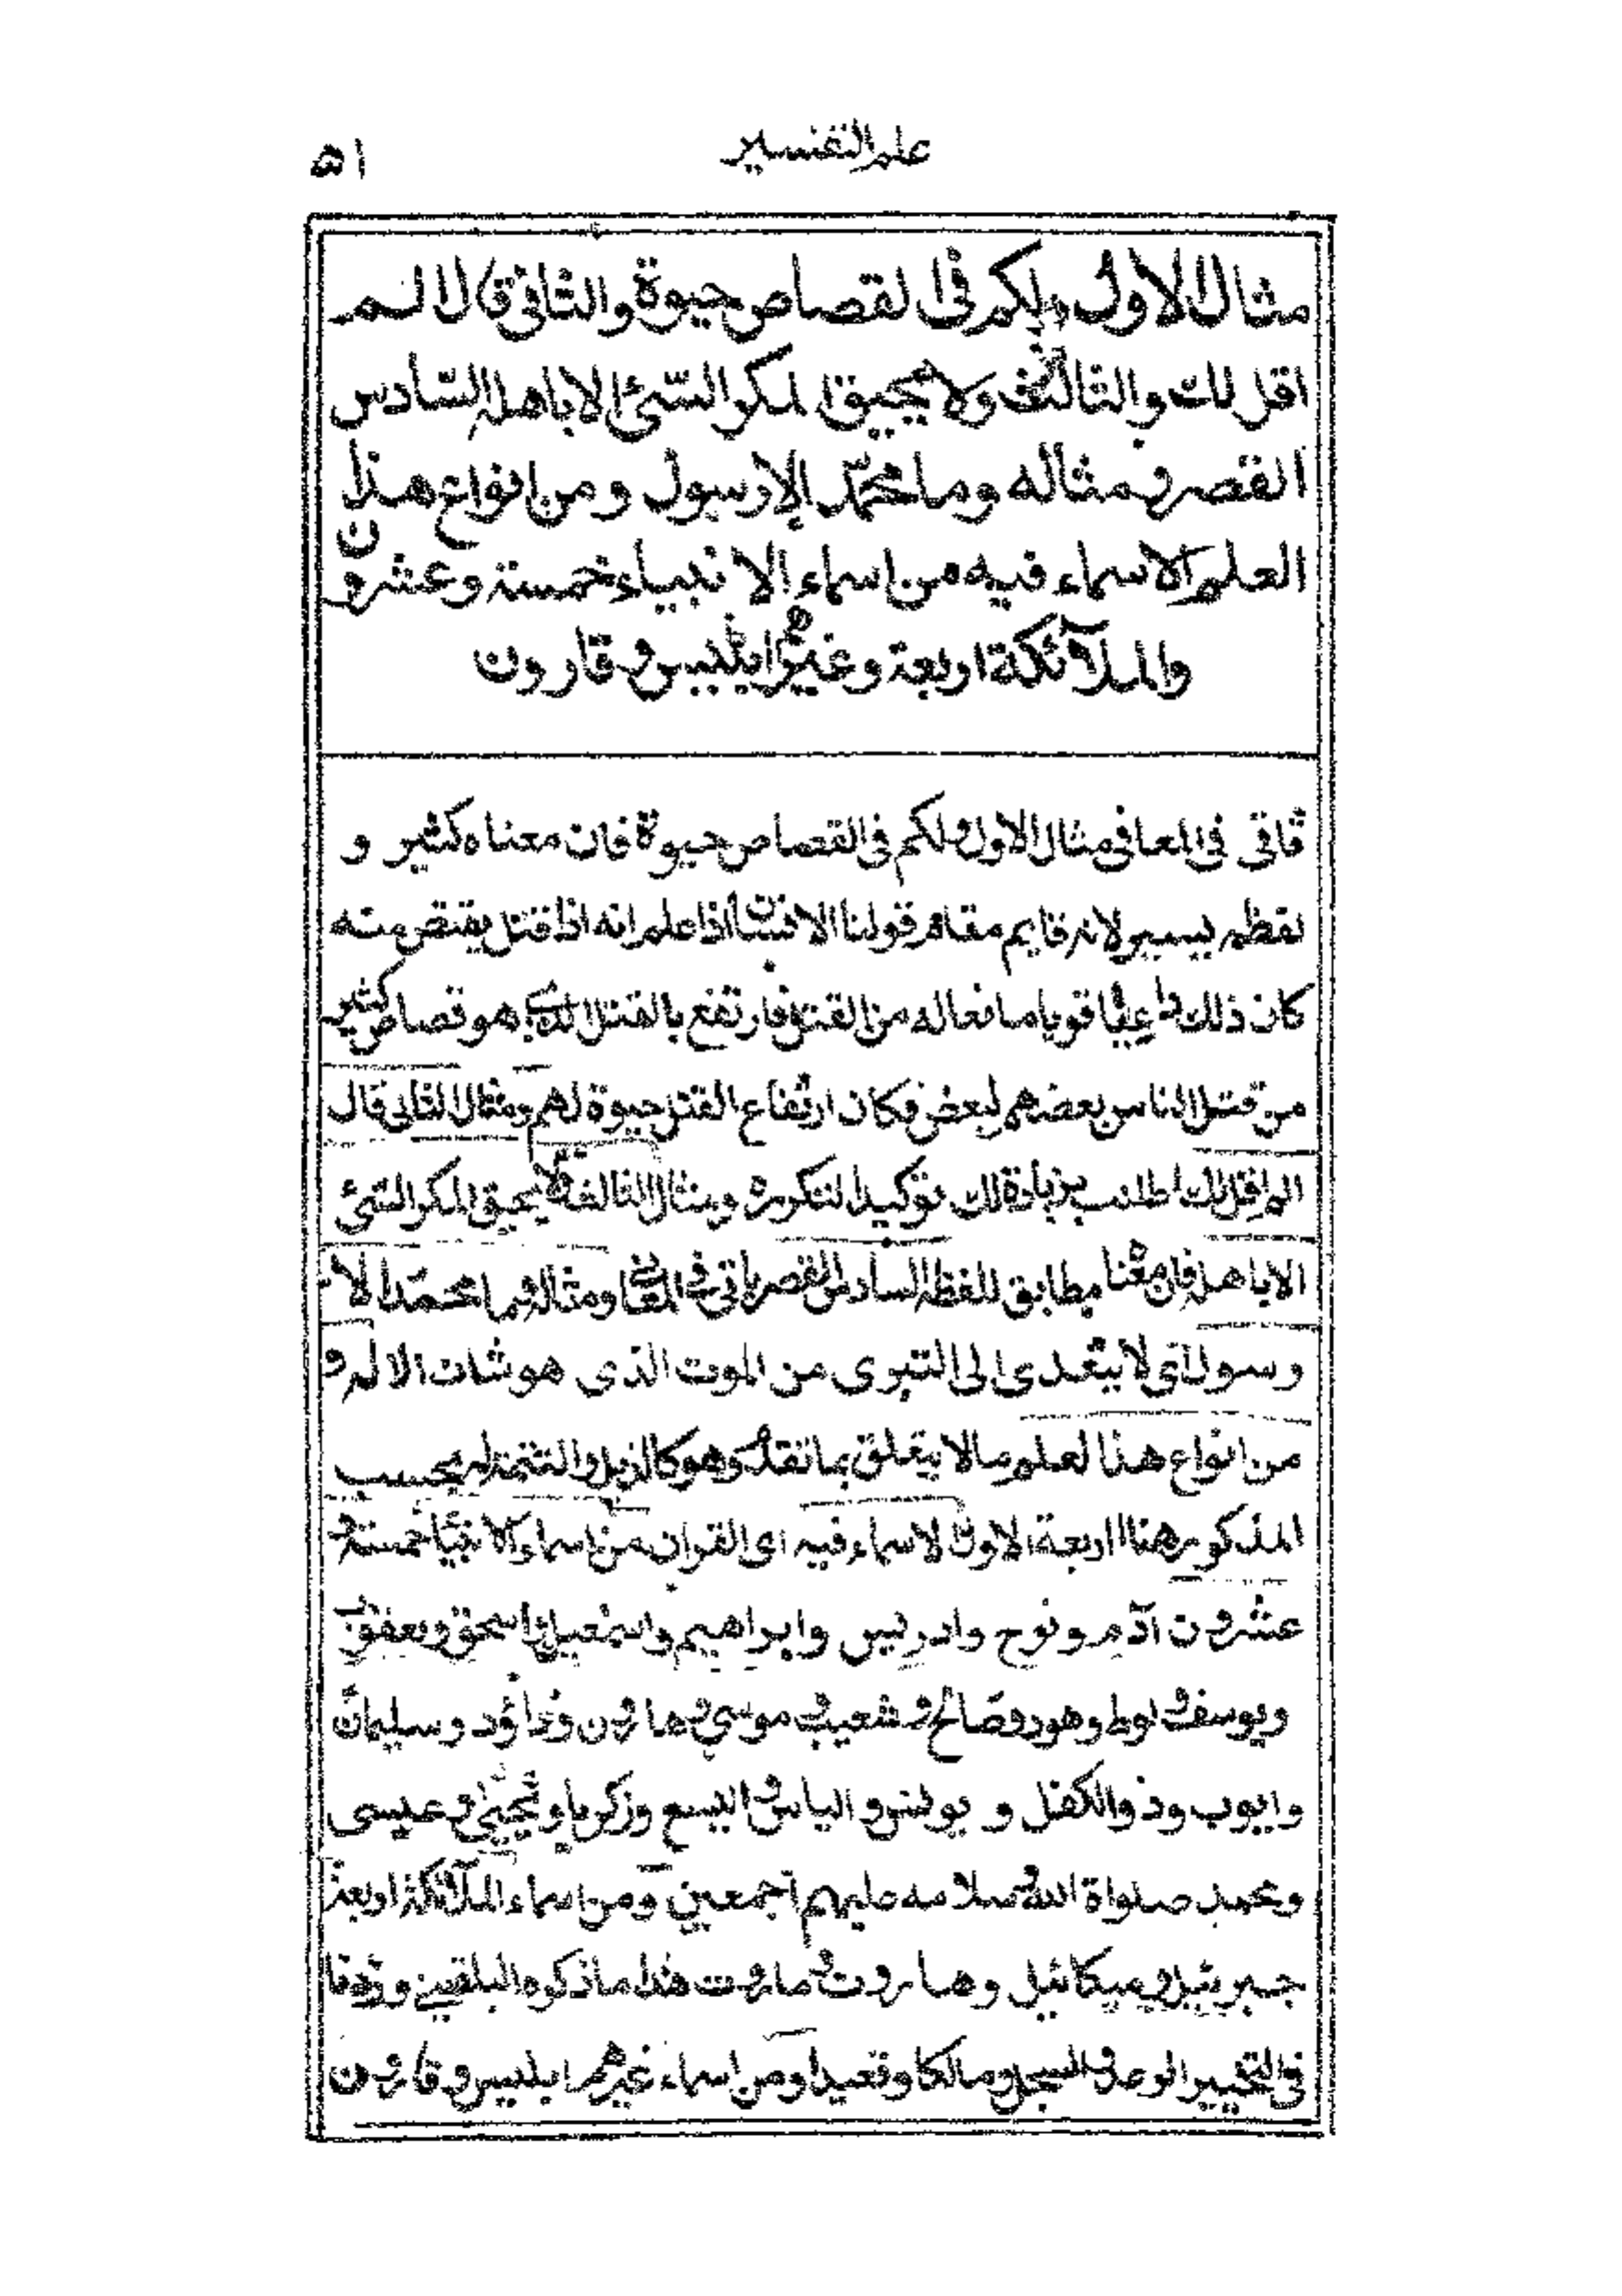 علم التفسير ٥١
مثال الاول ولكم فى القصاص حيوة والثانى قال الم
اقل لك والثالث ولا يحيق المكر السّئ الا باهله السّادس
القصر ومثاله وما محمّد إلا رسول ومن انواع هذا
العلم الاسماء فيه من اسماء الانبياء خمسة وعشرون
والملآئكة اربعة وغيرهم ابليس وقارون
فى المعانى مثال الاول ولكم فى القصاص حيوة فان معناه كثير و
لفظه يسير لانه قايم مقام قولنا الانسان اذا علم انه اذا قتل يقتص منه
كان ذلك داعيا قويا مانعا له من القتل فارتفع بالقتل الذى هو قصاص كثير
من قتل الناس بعضهم لبعض فكان ارتفاع القتل حيوة لهم ومثال الثانى قال
الم اقل لك اطنب بزيادة لك توكيدا لتكرره ومثال الثالث ولا يحيق المكر السّئ
الا باهله فان معناه مطابق للفظه السادس القصر ياتى فى المعانى ومثاله وما محمّد الا
رسول اى لا يتعدى الى التبرى من الموت الذى هو شان الاله و
من انواع هذا العلم ما لا يتعلق بما تقدم وهو كالذيل والتتمة له بحسب
المذكور هنا اربعة الاول الاسماء فيه اى القران من اسماء الانبياء خمسة و
عشرون آدم ونوح وادريس وابراهيم واسمعيل واسحق ويعقوب
ويوسف ولوط وهود وصالح وشعيب وموسى وهارون وداؤد وسليمان
وايوب وذو الكفل و يونس والياس واليسع وزكريا ويحيى وعيسى
ومحمد صلواة الله وسلامه عليهم اجمعين ومن اسماء الملآئكة اربعة
جبرئيل وميكائيل وهاروت وماروت هذا ما ذكره البلقينى وزدنا
فى التحبير الرعد والسجل ومالكا وقعيدا ومن اسماء غيرهم ابليس وقارون